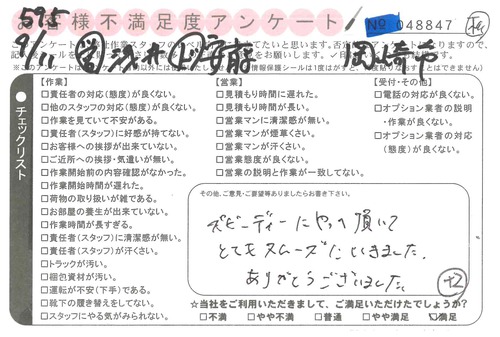 お客様不満足度アンケート
№ 048847
595
9/11
浅井
安藤
岡崎市
チェックリスト
【作業】
□責任者の対応(態度)が良くない。
□他のスタッフの対応(態度)が良くない。
□作業を見ていて不安がある。
□責任者(スタッフ)に好感が持てない。
□お客様への挨拶が出来ていない。
□ご近所への挨拶・気遣いが無い。
□作業開始前の内容確認がなかった。
□作業開始時間が遅れた。
□荷物の取り扱いが雑である。
□お部屋の養生が出来ていない。
□作業時間が長すぎる。
□責任者(スタッフ)に清潔感が無い。
□責任者(スタッフ)が汗くさい。
□トラックが汚い。
□梱包資材が汚い。
□運転が不安(下手)である。
□靴下の履き替えをしてない。
□スタッフにやる気がみられない。
【営業】
□見積もり時間に遅れた。
□見積もり時間が長い。
□営業マンに清潔感が無い。
□営業マンが煙草くさい。
□営業マンが汗くさい。
□営業態度が良くない。
□営業の説明と作業が一致してない。
【受付・その他】
□電話の対応が良くない。
□オプション業者の説明
・作業が良くない。
□オプション業者の対応
(態度)が良くない。
その他、ご意見・ご要望等ありましたらお書き下さい。
スピーディーにやって頂いて
とてもスムーズにいきました。
ありがとうございました。
+2
☆当社をご利用いただきまして、ご満足いただけたでしょうか?
□不満 □やや不満 □普通 □やや満足 □満足